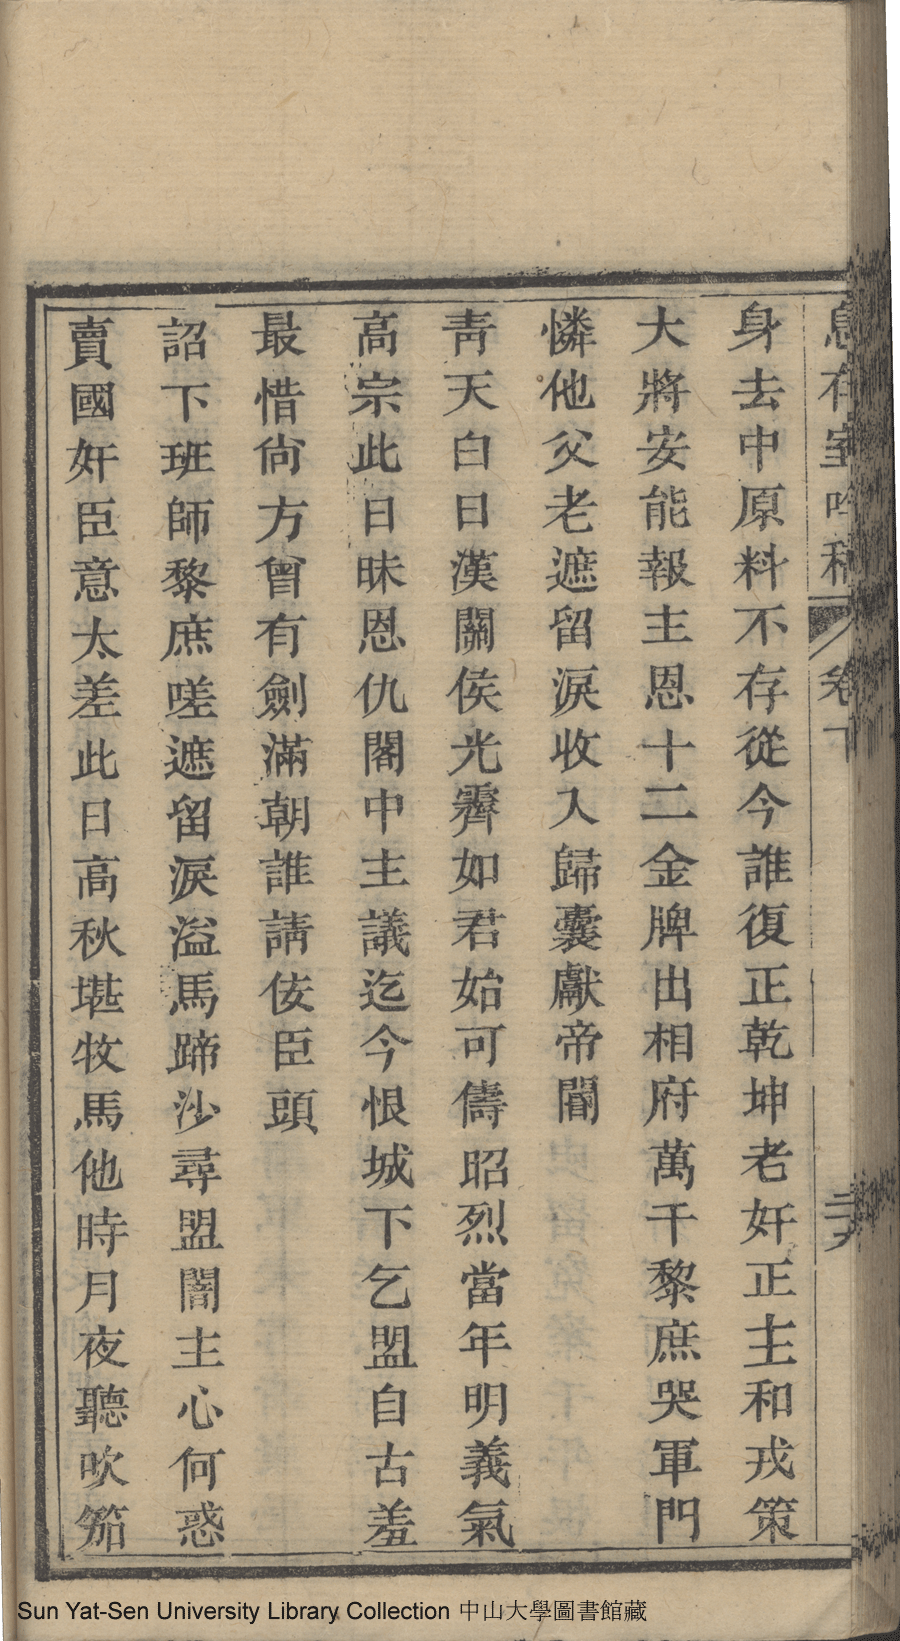 息存室吟稿 卷下
身去中原料不存從今誰復正乾坤老奸正主和戎策
大將安能報主恩十二金牌出相府萬千黎庶哭軍門
憐他父老遮留淚收入歸囊獻帝閽
青天白日漢關侯光霽如君始可儔昭烈當年明義氣
高宗此日昧恩仇閣中主議迄今恨城下乞盟自古羞
最惜尙方曾有劍滿朝誰請佞臣頭
詔下班師黎庶嗟遮留淚溢馬蹄沙尋盟闇主心何惑
賣國奸臣意太差此日高秋堪牧馬他時月夜聽吹笳
Sun Yat-Sen University Library Collection 中山大學圖書館藏